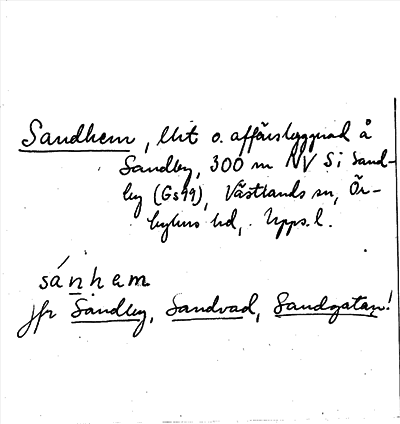 Sandhem, lht o. affärsbyggnad å
Sandby, 300 m NV Si Sand-
by (Gs99), Västlands sn, Ör-
byhus hd, Upps. l.
sánhem
jfr Sandby, Sandvad, Sandgatan!